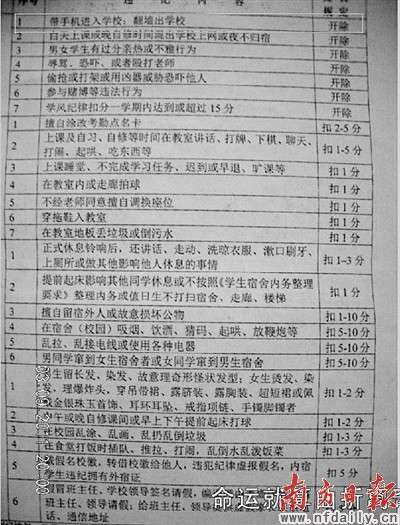 序号 违纪内容 规定
1 带手机进入学校;翻墙出学校 开除
2 白天上课或晚自修时间混出学校上网或夜不归宿 开除
3 男女学生有过分亲热或不雅行为 开除
4 辱骂、恐吓、或者殴打老师 开除
5 偷抢或打架或用凶器威胁恐吓他人 开除
6 参与赌博等违法行为 开除
7 学风纪律扣分一学期内达到或超过15分 开除
1 擅自涂改考勤点名卡 扣2-5分
2 上课及自习、自修等时间在教室讲话、打牌、下棋、聊天、
打闹、起哄、吃东西等 扣1-5分
3 上课睡觉、不完成学习任务、迟到或早退、旷课等 扣1分
4 在教室内或走廊拍球 扣1分
5 不经老师同意擅自调换座位 扣1分
6 穿拖鞋入教室 扣1分
7 在教室地板丢垃圾或倒污水 扣1分
1 正式休息铃响后,还讲话、走动、洗晾衣服、漱口刷牙、
上厕所或做其他影响他人休息的事情 扣1-3分
2 提前起床影响其他同学休息或不按照《学生宿舍内务整理
要求》整理内务或值日生不打扫宿舍、走廊、楼梯 扣1分
3 擅自留宿外人或故意损坏公物 扣1-10分
4 在宿舍(校园)吸烟、饮酒、猜码、起哄、放鞭炮等 扣5-10分
5 乱拉、乱接电线或使用各种电器 扣5-10分
6 男同学窜到女生宿舍者或女同学窜到男生宿舍 扣5-10分
1 男生留长发、染发、故意理奇形怪状发型;女生烫发、染
发、理爆炸头,穿吊带裙、露脐装、露胸装、超短裙或佩
戴金银珠玉首饰、耳环耳坠、戒指项链、手镯脚镯者 扣1-2分
2 中午或晚自修课间或早上下午提前起床打球 扣1-2分
3 在校园乱涂、乱画、乱扔乱倒垃圾 扣1-3分
4 在食堂打饭时插队、推拉、打闹、乱倒水乱泼饭菜 扣1-3分
5 学生违纪拥有外宿证 扣5分
6 冒班主任、学校领导签名请假,
主任、领导请假,
话、通信地址
命运就靠画新
南方日报
www.nfdaily.cn